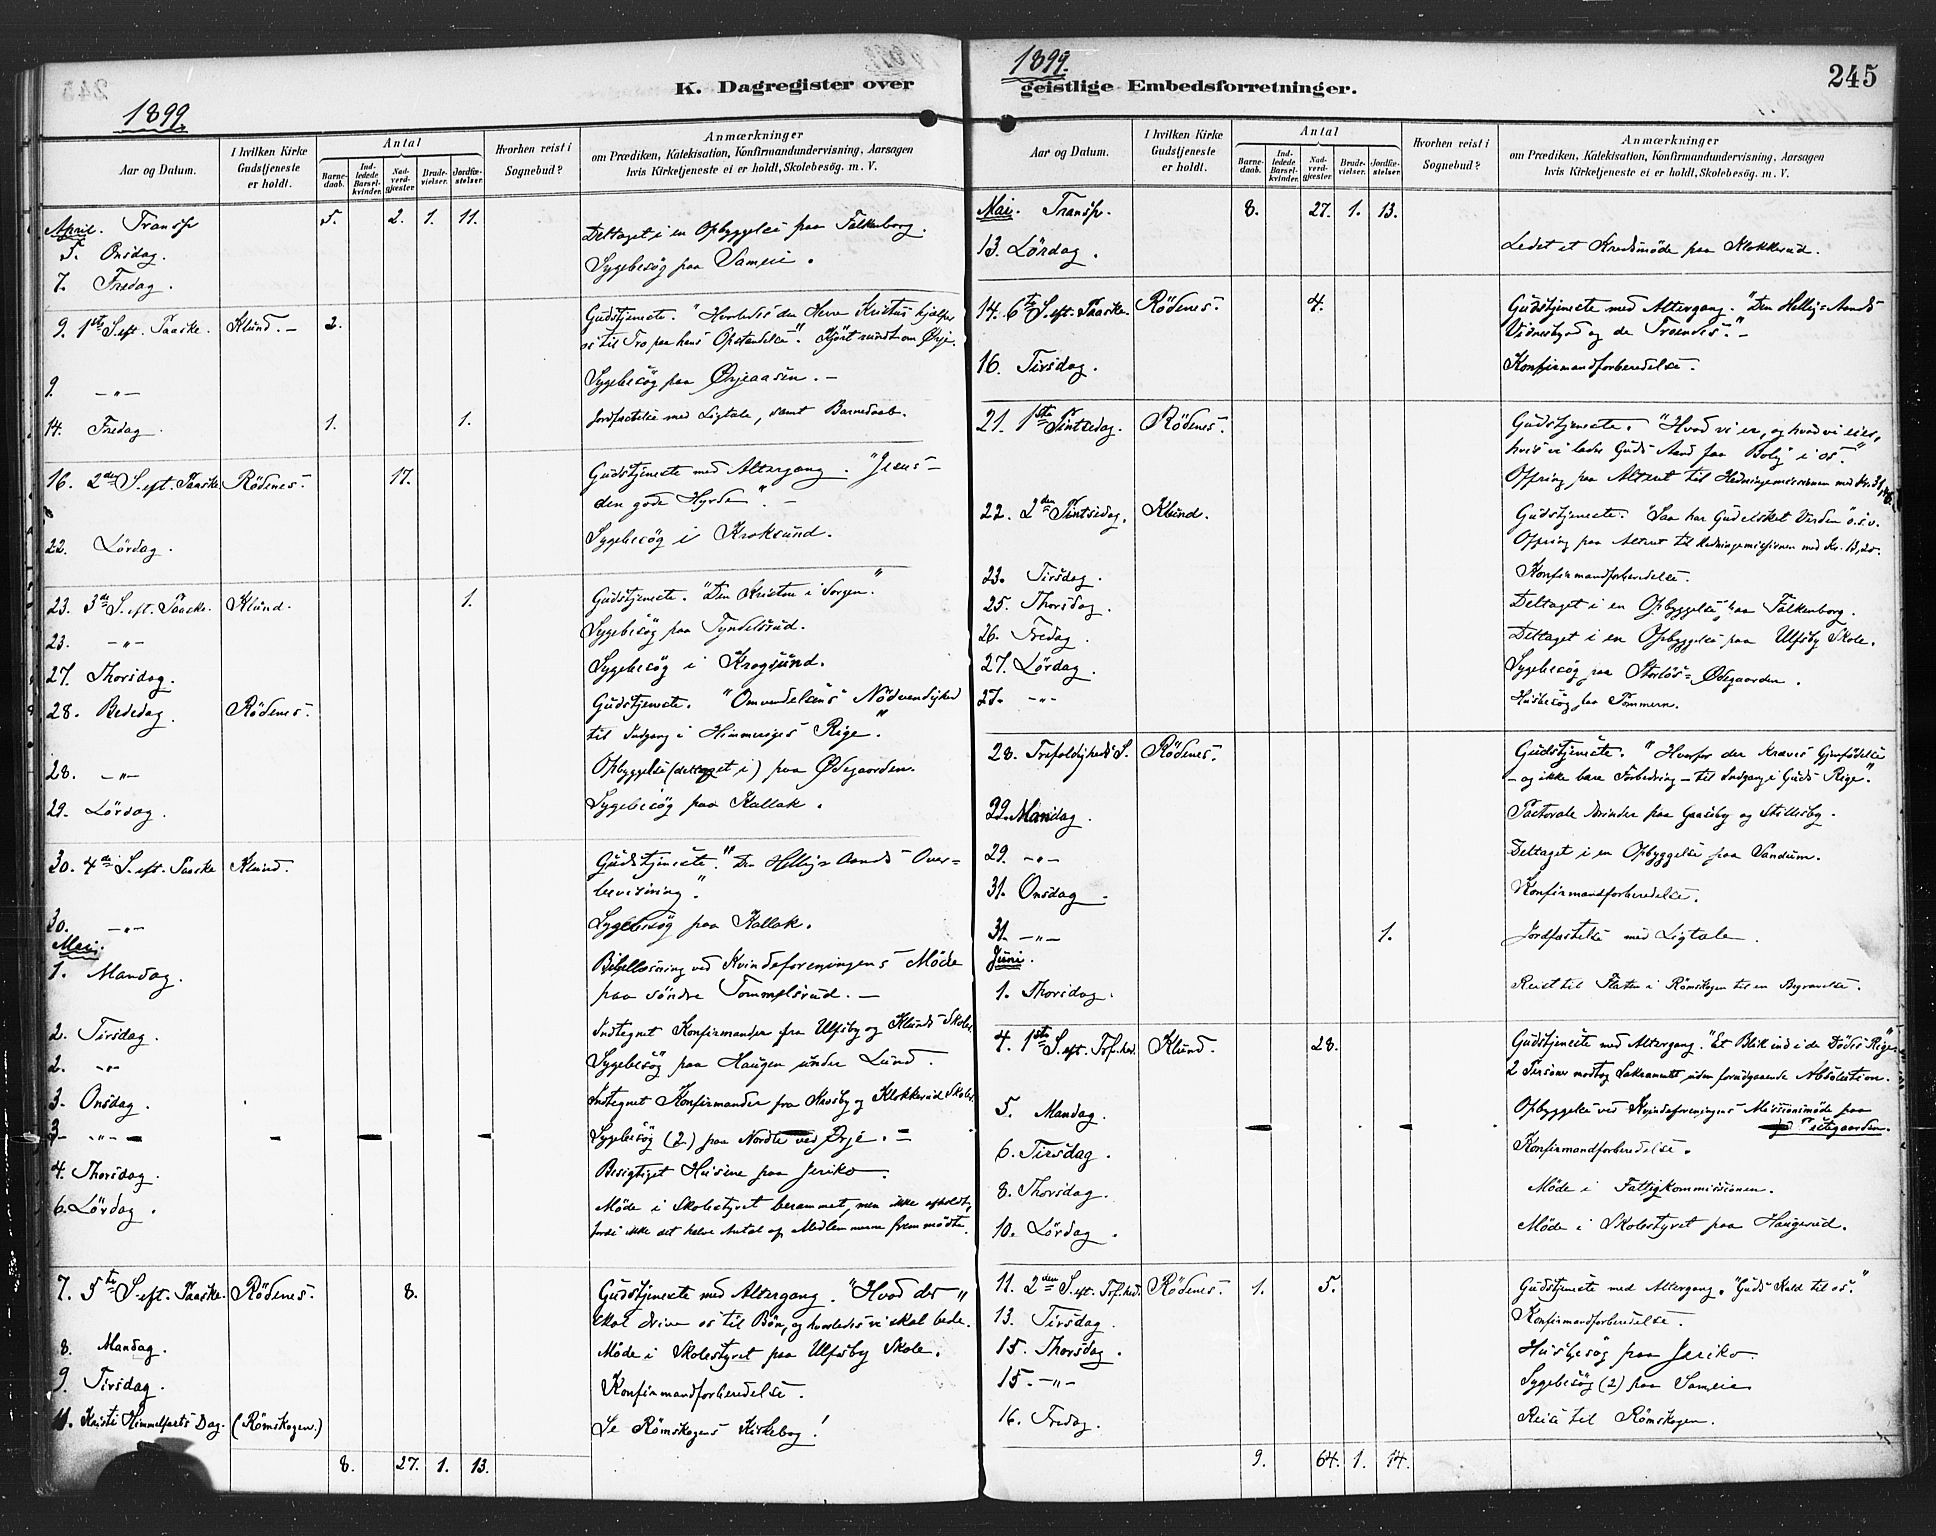 1899.
K. Dagregister over
Aar og Datum.
I hvilken Kirke Gudstjeneste er holdt.
Antal
Barnedaab.
Indledede Barselkvinder.
Nadverdgjæster.
Brudevielser.
Jordfæstelser.
Hvorhen reist i Sognebud?
Anmærkninger
om Prædiken, Katekisation, Konfirmandundervisning, Aarsagen
hvis Kirketjeneste ei er holdt, Skolebesög. m. V.
April. Transp 5. 2. 1. 11.
5. Onsdag. Deltaget i en Opbyggelse paa Falkenborg.
7. Fredag. Sygebesög paa Sameie.
9. 1ste S. eft. Paaske. Klund. - 2. Gudstjeneste. "Hvorledes den Herre Kristus hjælper
os til Tro paa hans Opstandelse". Kjört rundt om Ørje.
9. -"- Sygebesög paa Ørjeaasen. -
14. Fredag. 1. 1. Jordfæstelse med Ligtale, samt Barnedaab.
16. 2den S. eft. Paaske Rödenes. 17. Gudstjeneste med Altergang. "Jesus -
den gode Hyrde". -
22. Lördag. Sygebesög i Kroksund.
23. 3de S. eft. Paaske. Klund. 1. Gudstjeneste. "Den Kristne i Sorgen."
23. -"- Sygebesög paa Tyndelsrud.
27. Thorsdag. Sygebesög i Krogsund.
28. Bededag. Rödenes. Gudstjeneste. "Omvendelsens Nödvendighed
til Indgang i Himmeriges Rige."
28. -"- Opbyggelse (deltaget i) paa Ødegaarden.
29. Lördag. Sygebesög paa Kallak.
30. 4de S. eft. Paaske Klund. Gudstjeneste. "Den Hellig-Aands Over=
bevisning".
30. -"- Sygebesög paa Kallak.
Mai.
1. Mandag. Bibellæsning ved Kvindeforeningens Möde
paa söndre Tommelsrud. -
2. Tirsdag. Indtegnet Konfirmander fra Ulfsby og Klunds Skoler.
2. -"- Sygebesög paa Haugen under Lund.
3. Onsdag. Indtegnet Konfirmander fra Havsby og Klokkerud Skoler.
3. -"- Sygebesög (2) paa Nordre ved Ørje. -
4. Thorsdag. Besigtiget Husene paa Jeriko.
6. Lördag. Möde i Skolestyret berammet, men ikke afholdt,
fordi ikke det halve Antal af Medlemmerne fremmödte.
7. 5te S. eft. Paaske. Rödenes. 8. Gudstjeneste med Altergang. "Hvad der
skal drive os til Bön, og hvorledes vi skal bede."
8. Mandag. Möde i Skolestyret paa Ulfsby Skole.
9. Tirsdag. Konfirmandforberedelse.
11. Kristi Himmelfarts Dag. (Römskogen.) Se Römskogens Kirkebog!
8. 27. 1. 13.
1899.
geistlige Embedsforretninger.
245
Aar og Datum.
I hvilken Kirke Gudstjeneste er holdt.
Antal
Barnedaab.
Indledede Barselkvinder.
Nadverdgjæster.
Brudevielser.
Jordfæstelser.
Hvorhen reist i Sognebud?
Anmærkninger
om Prædiken, Katekisation, Konfirmandundervisning, Aarsagen
hvis Kirketjeneste ei er holdt, Skolebesög. m. V.
Mai. Transp. 8. 27. 1. 13.
13. Lördag. Ledet et Kredsmöde paa Klokkerud.
14. 6te S. eft. Paaske. Rödenes. 4. Gudstjeneste med Altergang. "Den Hellig-Aands
Vidnesbyrd og de Troendes". -
16. Tirsdag. Konfirmandforberedelse.
21. 1ste Pintsedag. Rödenes. Gudstjeneste. "Hvad vi er, og hvad vi eier,
hvis vi lader Guds Aand faa Bolig i os."
Offring paa Alteret til Hedningemissionen med Kr. 31,
22. 2den Pintsedag. Klund. Gudstjeneste. "Saa har Gud elsket Verden" o.s.v.
Offring paa Alteret til Hedningemissionen med Kr. 13,20.
23. Tirsdag. Konfirmandforberedelse.
25. Thorsdag. Deltaget i en Opbyggelse paa Falkenborg.
26. Fredag. Deltaget i en Opbyggelse paa Ulfsby Skole.
27. Lördag. Sygebesög paa Storlös-Ødegaarden.
27. -"- Husbesög paa Tommern.
28. Trefoldigheds S. Rödenes. Gudstjeneste. "Hvorfor der kræves Gjenfödelse
- og ikke bare Forbedring - til Indgang i Guds Rige".
29. Mandag. Pastorale Ærinder paa Gaasby og Stillesby.
29. -"- Deltaget i en Opbyggelse paa Sandum.
31. Onsdag. Konfirmandforberedelse.
31. -"- 1. Jordfæstelse med Ligtale.
Juni.
1. Thorsdag. Reist til Flaten i Römskogen til en Begravelse.
4. 1ste S. eft. Trf.hed. Klund. 28. Gudstjeneste med Altergang. "Et Blik ind i de Dödes Rige".
2 Personer modtog Sakramentet uden forudgaaende Absolution.
5. Mandag. Opbyggelse ved Kvindeforeningens Missionsmöde paa
Prestegaarden.
6. Tirsdag. Konfirmandforberedelse.
8. Thorsdag. Möde i Fattigkommissionen.
10. Lördag. Möde i Skolestyret paa Haugerud.
11. 2den S. eft. Trf.hed. Rödenes. 1. 5. Gudstjeneste med Altergang. "Guds Kald til os."
13. Tirsdag. Konfirmandforberedelse.
15. Thorsdag. Husbesög paa Jeriko.
15. -"- Sygebesög (2) paa Sameie
16. Fredag. Reise til Römskogen.
9. 64. 1. 14.